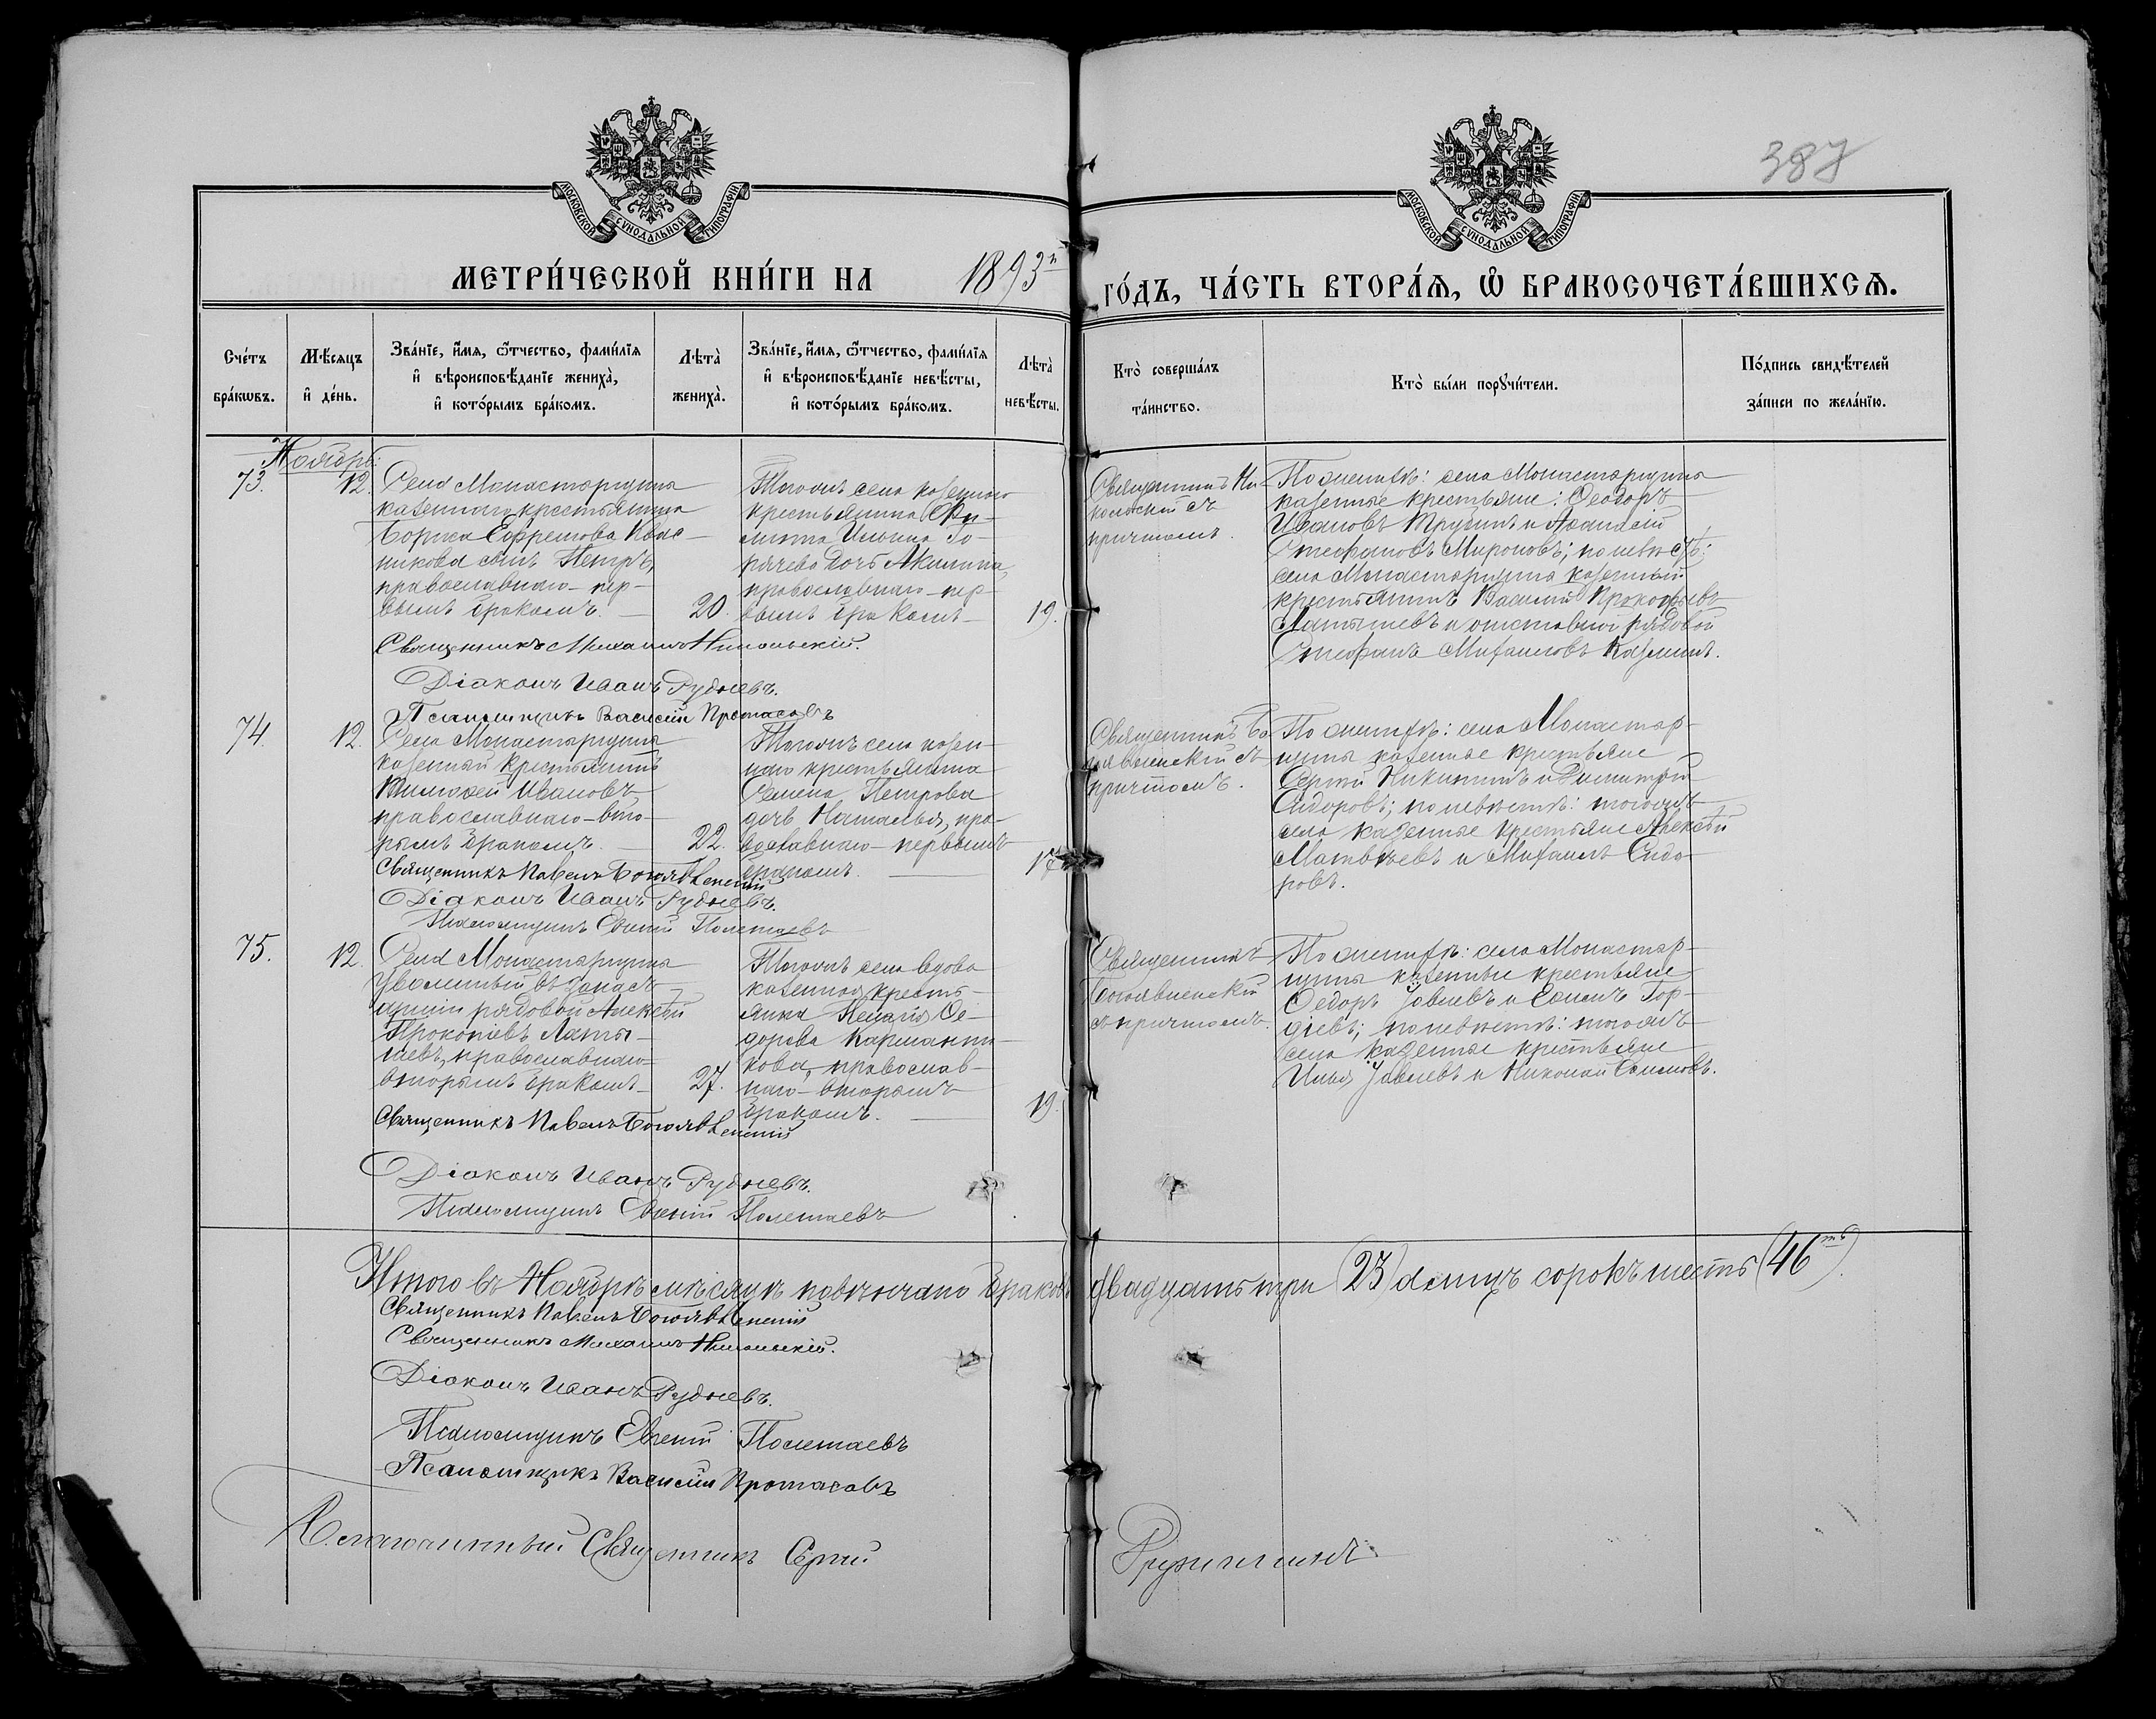 387
МОСКОВСКОЙ СѴНОДАЛЬНОЙ ТИПОГРАФІИ
МОСКОВСКОЙ СѴНОДАЛЬНОЙ ТИПОГРАФІИ
МЕТРИ́ЧЕСКОЙ КНИ́ГИ НА 1893 г ГО́ДЪ, ЧА́СТЬ ВТОРА́Ѧ, Ѽ БРАКОСОЧЕТА́ВШИХСѦ.
Сче́тъ
бра́кѡвъ.
Мѣ́сяцъ
и҆ де́нь.
Зва́нїе, и҆́мѧ, ѻ҆́тчество, фами́лїѧ
и҆ вѣроисповѣ́данїе жениха̀,
и҆ кото́рымъ бра́комъ.
Лѣта̀
жениха̀.
Зва́нїе, и҆́мѧ, ѻ҆́тчество, фами́лїѧ
и҆ вѣроисповѣ́данїе невѣ́сты,
и҆ кото́рымъ бра́комъ.
Лѣта̀
невѣ́сты.
Кто̀ соверша́лъ
та́инство.
Кто̀ бы́ли порꙋчи́тели.
По́дпись свидѣ́телей
за́писи по жела́нїю.
Ноябрь:
73.
12.
Села Монастырщина
казеннаго крестьянина
Бориса Ефремова Квас-
никова сынъ Петръ,
православнаго – пер-
вымъ бракомъ. –
20.
Тогоже села казеннаго
крестьянина Фи-
липа Ильина Го-
рячева дочь Акилина,
православнаго – пер-
вымъ бракомъ –
19.
Священникъ Ни-
кольскій съ
причтомъ.
По женихѣ: села Монастырщина
казенные крестьяне: Ѳеодоръ
Ивановъ Трубинъ и Аѳанасій
Стефановъ Мироновъ; по невѣстѣ:
села Монастырщина казенный
крестьянинъ Василій Прокофьевъ
Латышевъ и отставной рядовой
Стефанъ Михаиловъ Казминъ.
Священникъ Михаилъ Никольскій.
Діаконъ Иванъ Рудневъ.
Псаломщикъ Василій Протасовъ
74.
12.
Села Монастырщина
казенный крестьянинъ
Тимоѳей Ивановъ
православнаго – вто-
рымъ бракомъ. –
22.
Тогоже села казен-
наго крестьянина
Семена Петрова
дочь Наталья, пра-
вославнаго – первымъ
бракомъ.
Священникъ Бо-
гоявленскій съ
причтомъ.
По женихѣ: села Монастыр-
щина казенные крестьяне
Сергій Никитинъ и Димитрій
Сидоровъ; по невѣстѣ: тогоже
села казенные крестьяне Алексѣй
Матвѣевъ и Михаилъ Сидо-
ровъ.
Священникъ Павелъ Богоявленскій
Діаконъ Иванъ Рудневъ.
Псаломщикъ Евгеній Полетаевъ
75.
12.
Села Монастырщина
Уволенный въ запасъ
арміи рядовой Алексѣй
Прокопіевъ Латы-
шевъ, православнаго –
вторымъ бракомъ –
27.
Тогоже села вдова
казенная кресть-
янка Ѳе-
дорова
кова, православ-
наго – вторымъ
бракомъ.
19.
Священникъ
Богоявленскій
съ причтомъ.
По женихѣ: села Монастыр-
щина казенные крестьяне
Ѳедоръ Іовлевъ и Семенъ Гор-
діевъ; по невѣстѣ: тогоже
села казенные крестьяне
Илья Іовлевъ и Николай Семеновъ.
Священникъ Павелъ Богоявленскій
Діаконъ Иванъ Рудневъ.
Псаломщикъ Евгеній Полетаевъ
Итого въ Ноябрѣ мѣсяцѣ повѣнчано браковъ двадцать три (23) а лицъ сорокъ шесть (46ть).
Священникъ Павелъ Богоявленскій
Священникъ Михаилъ Никольскій.
Діаконъ Иванъ Рудневъ.
Псаломщикъ Евгеній Полетаевъ
Псаломщикъ Василій Протасовъ
Благочинный Священникъ Сергій